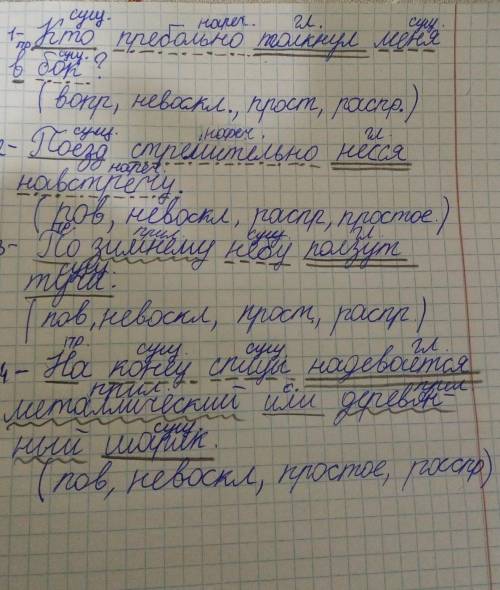 сущ. нареч. гл. сущ.
1- Кто пребольно толкнул меня
пр. сущ.
в бок?
(вопр, невоскл., прост, распр.)
сущ. нареч. гл.
2- Поезд стремительно несся
нареч.
навстречу.
(пов, невоскл, распр, простое.)
пр. прил. сущ. гл.
3- По зимнему небу ползут
сущ.
тучи.
(пов, невоскл, прост, распр.)
пр. сущ. сущ. гл.
4- На конец спицы надевается
прил. прил
металлический или деревян-
сущ.
ный шарик.
(пов, невоскл, простое, распр)